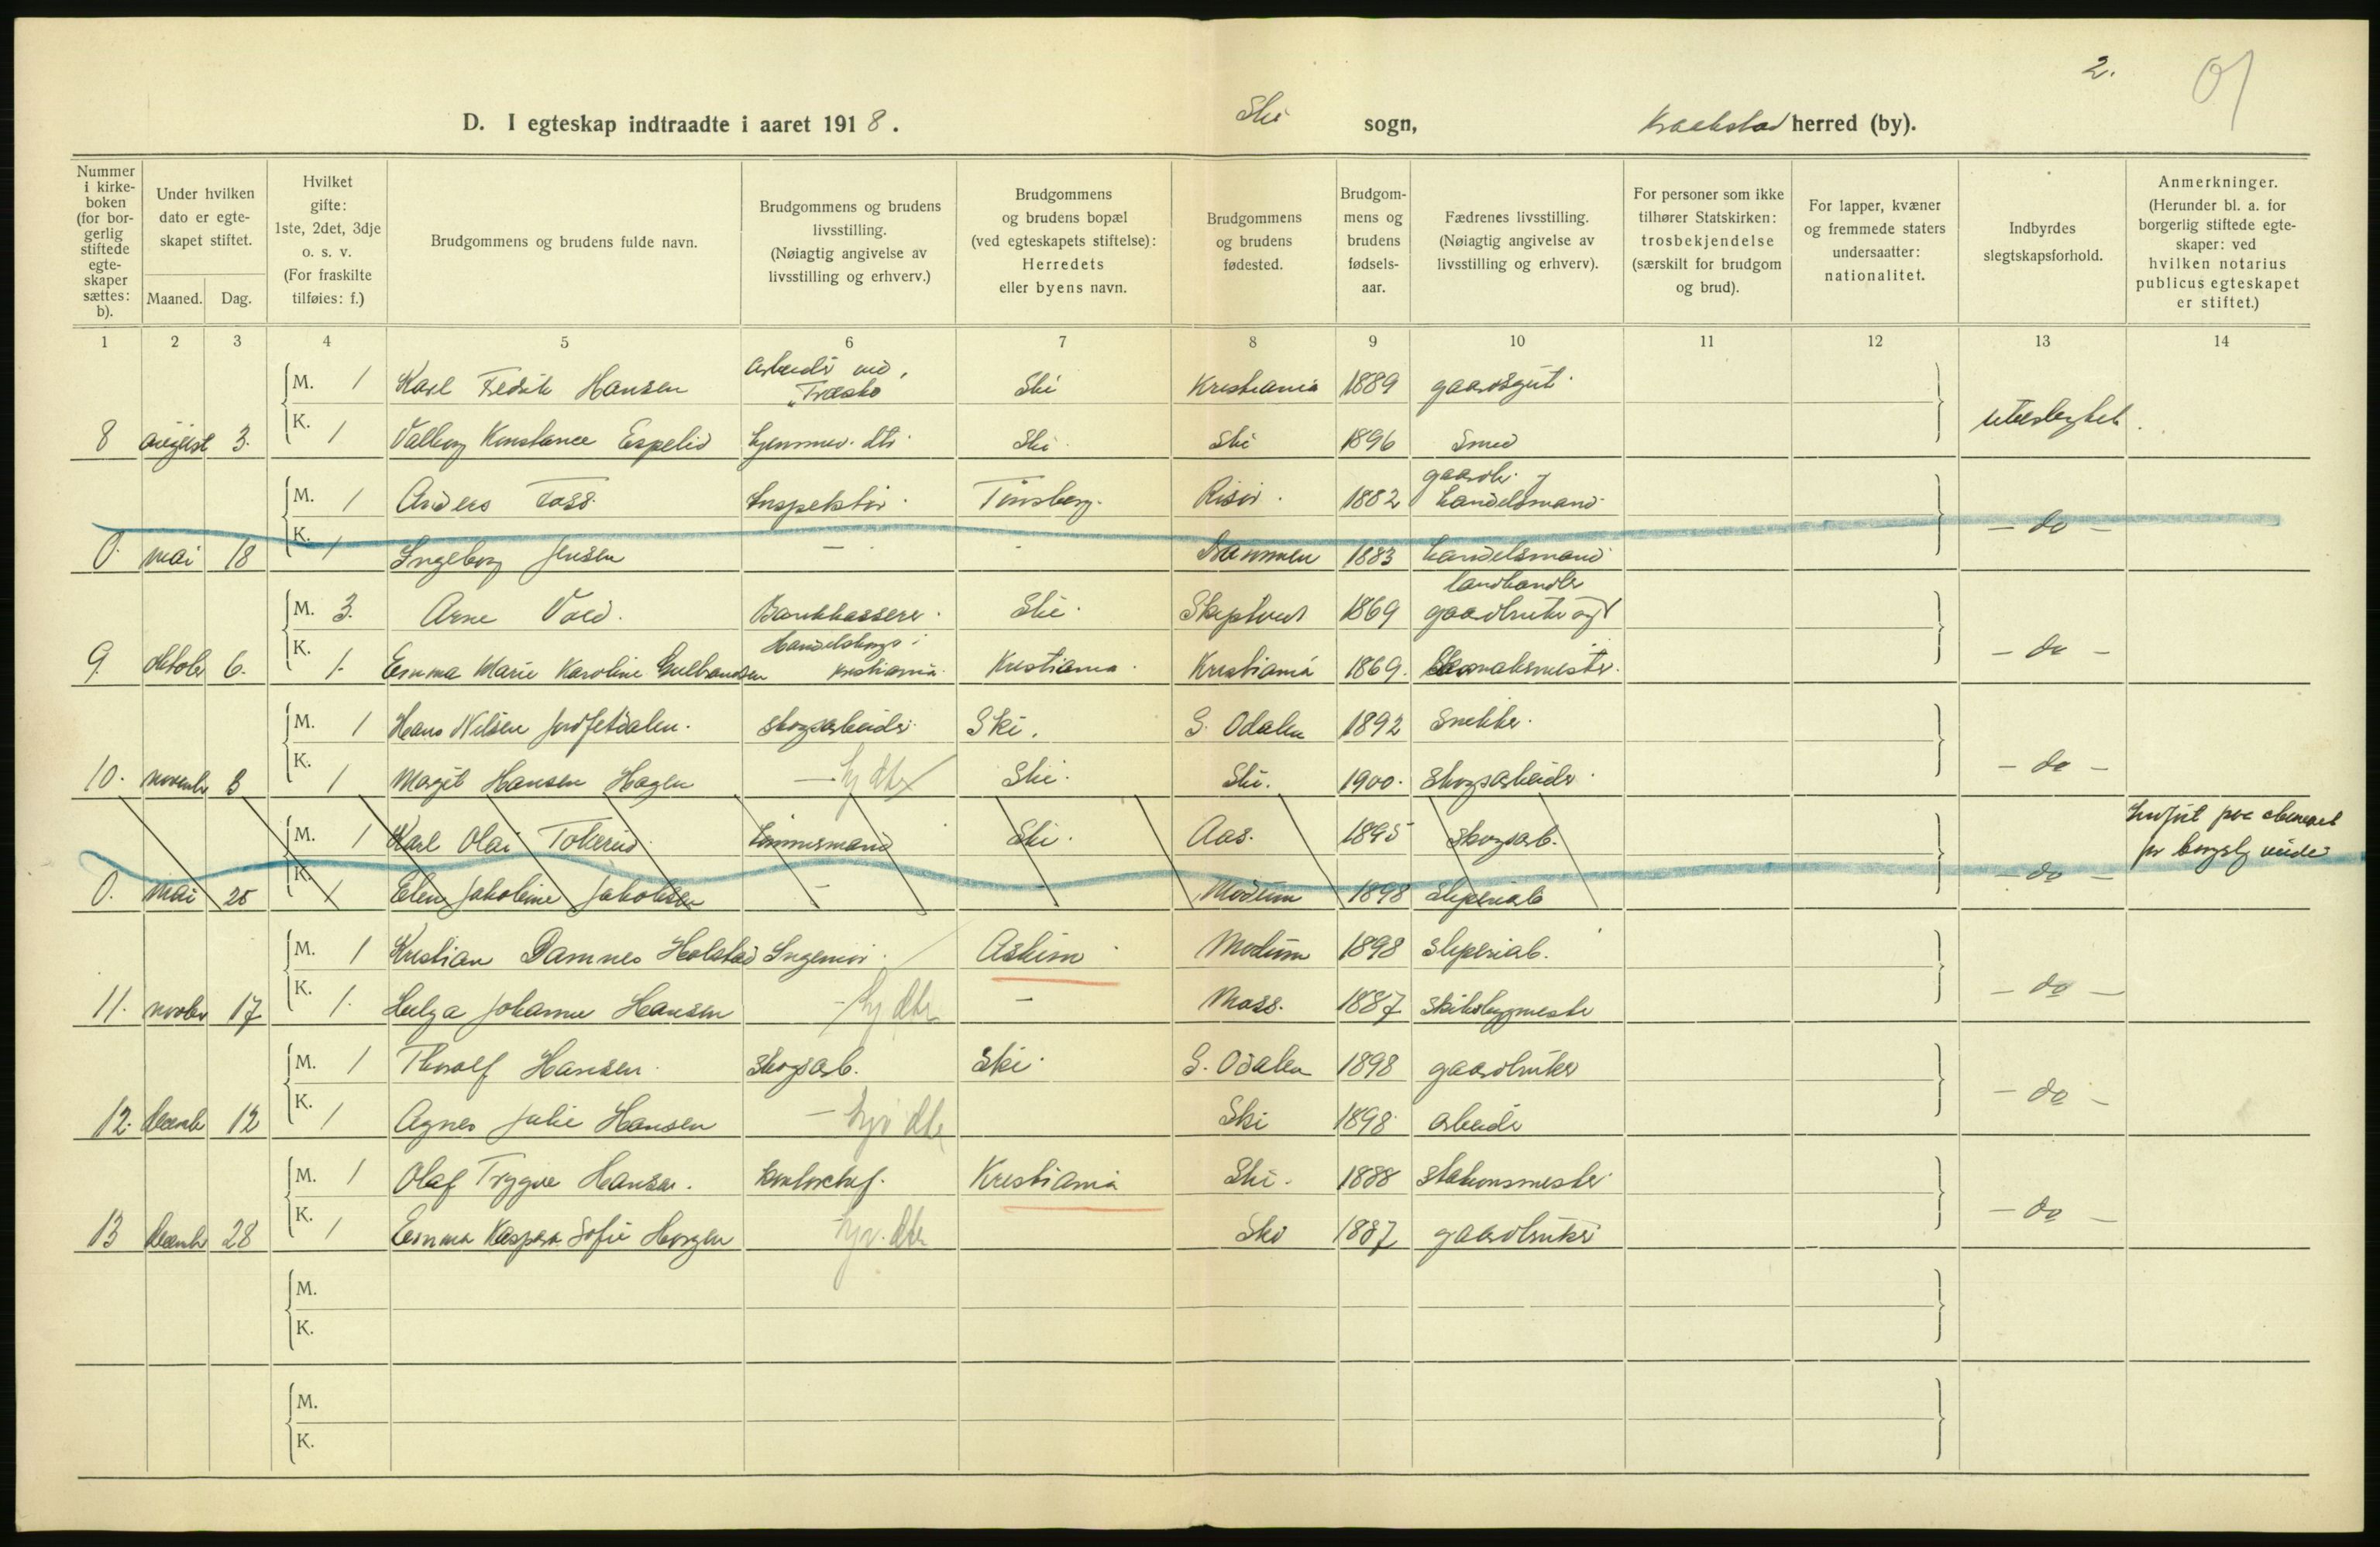 2.
D. I egteskap indtraadte i aaret 1918. Ski sogn, Kraakstad herred (by).
Nummer i kirkeboken (for borgerlig stiftede egteskaper sættes: b).
Under hvilken dato er egteskapet stiftet.
Maaned. Dag.
Hvilket gifte: 1ste, 2det, 3dje o. s. v. (For fraskilte tilføies: f.)
Brudgommens og brudens fulde navn.
Brudgommens og brudens livsstilling. (Nøiagtig angivelse av livsstilling og erhverv.)
Brudgommens og brudens bopæl (ved egteskapets stiftelse): Herredets eller byens navn.
Brudgommens og brudens fødested.
Brudgommens og brudens fødselsaar.
Fædrenes livsstilling. (Nøiagtig angivelse av livsstilling og erhverv).
For personer som ikke tilhører Statskirken: trosbekjendelse (særskilt for brudgom og brud).
For lapper, kvæner og fremmede staters undersaatter: nationalitet.
Indbyrdes slegtskapsforhold.
Anmerkninger. (Herunder bl. a. for borgerlig stiftede egteskaper: ved hvilken notarius publicus egteskapet er stiftet.)
1 2 3 4 5 6 7 8 9 10 11 12 13 14
M. 1 Karl Fredrik Hansen Ski Kristiania 1889 gaardsgut
8 august 3. K. 1 Valborg Konstance Espelid hjemmev. dtr. Ski Ski 1896 Smed
M. 1 Anders Foss Inspektør Tønsberg Risør 1882 handelsmand
0. mai 18 K. 1 Ingeborg Jensen - - Drammen 1883 handelsmand - do -
landhandler
M. 3. Arne Vold. Bankkasserer Ski Skiptvet 1869 gaardbruker og
9. oktober 6. K. 1. Emma Marie Karoline Gulbrandsen Kristiania Kristiania Kristiania 1869. - do -
M. 1 Hans Nilsen skogsarbeider Ski. S. Odalen 1892 Snekker.
10. november 3 K. 1 Margit Hansen Hagen - hj dtr Ski. Ski. 1900. Skogsarbeider - do -
M. 1 Karl Olai Tokerud Tømmermand Ski. Aas. 1895 Skogsarb.
0. mai 25 K. 1 Elen Jakobine Jakobsen - - Modum 1898 Sliperiarb - do -
M. 1 Kristian Damnes Holstad Ingeniør Askim Modum 1898 Sliperiarb.
11. novbr 17 K. 1. Helga Johanne Hansen - hj dtr - Moss. 1887 Skibsbyggmester - do -
M. 1 Thoralf Hansen Skogsarb. Ski S. Odalen 1898 gaardbruker
12. decembr 12 K. 1 Agnes Julie Hansen - hj dtr Ski 1898 arbeider - do -
M. 1 Olaf Trygve Hansen. Kontorchef. Kristiania Ski. 1888 Stationsmester
13 decembr 28 K. 1 Emma Kaspara Sofie Horgen hj. dtr Ski 1887 gaardbruker - do -
M.
K.
M.
K.